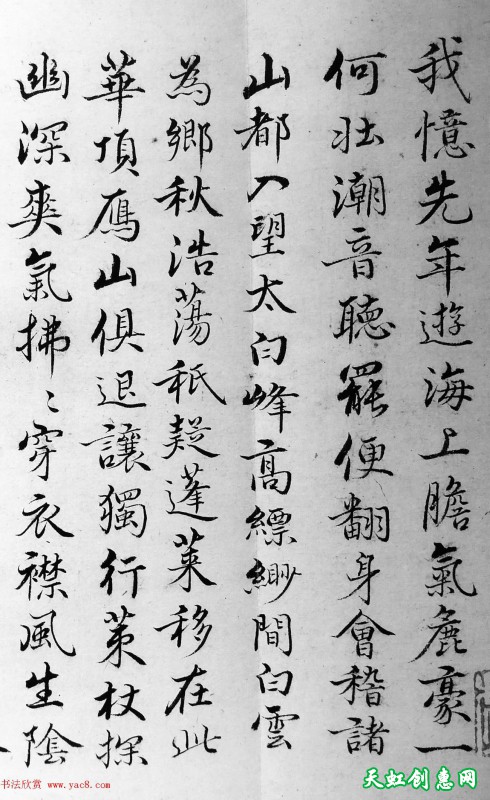 我憶先年遊海上膽氣麁豪一
何壯潮音聽罷便翻身會稽諸
山都入望太白峰高縹緲間白雲
為鄉秋浩蕩秪疑蓬萊移在此
華頂鴈山俱退讓獨行策杖探
幽深爽氣拂〻穿衣襟風生陰
书法欣赏 www.yac8.com
天虹创惠网